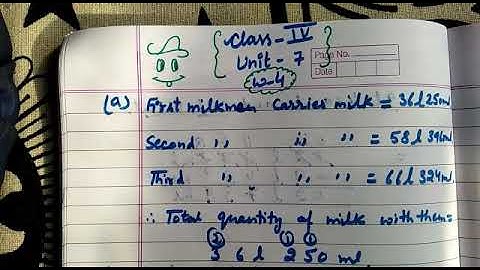 Class - IV
Unit - 7
W-4
Page No.
Date
(a) First milkman Carries milk = 36l 25ml
Second ,, ,, ,, = 58l 396ml
Third ,, ,, ,, = 66l 324ml
∴ Total quantity of milk with them =
② ① ①
3 6 l 250 ml